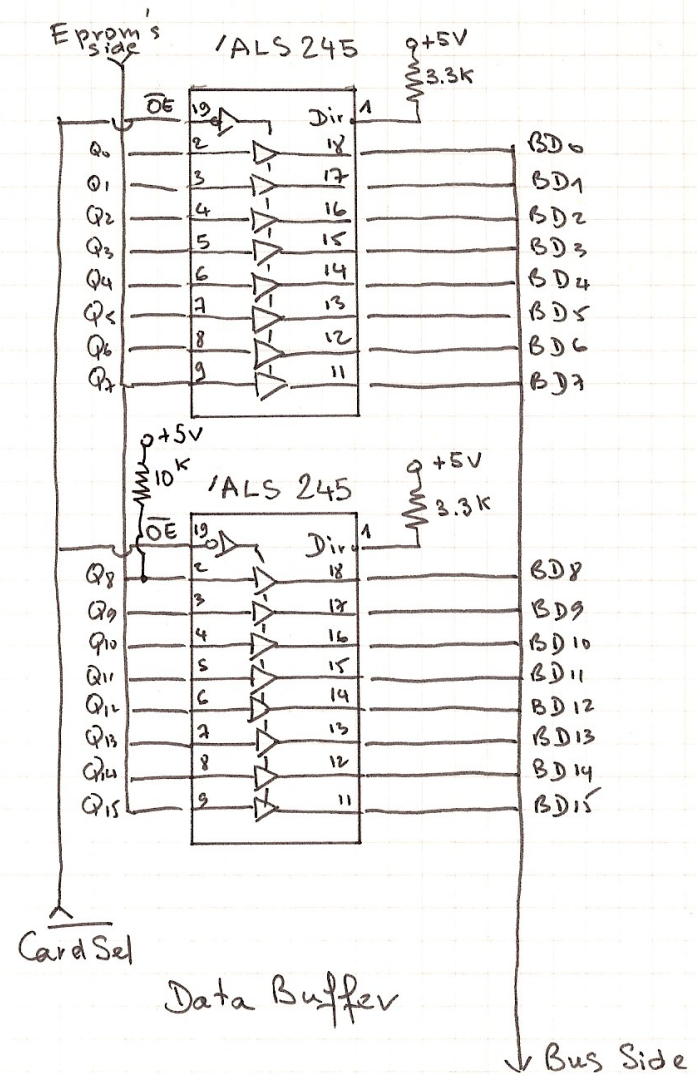 Eprom's
side
'ALS 245
+5V
3.3K
OE 19 Dir 1
Q0 2 18 BD0
Q1 3 17 BD1
Q2 4 16 BD2
Q3 5 15 BD3
Q4 6 14 BD4
Q5 7 13 BD5
Q6 8 12 BD6
Q7 9 11 BD7
+5V
10K
'ALS 245
+5V
3.3K
OE 19 Dir 1
Q8 2 18 BD8
Q9 3 17 BD9
Q10 4 16 BD10
Q11 5 15 BD11
Q12 6 14 BD12
Q13 7 13 BD13
Q14 8 12 BD14
Q15 9 11 BD15
CardSel
Data Buffer
Bus Side